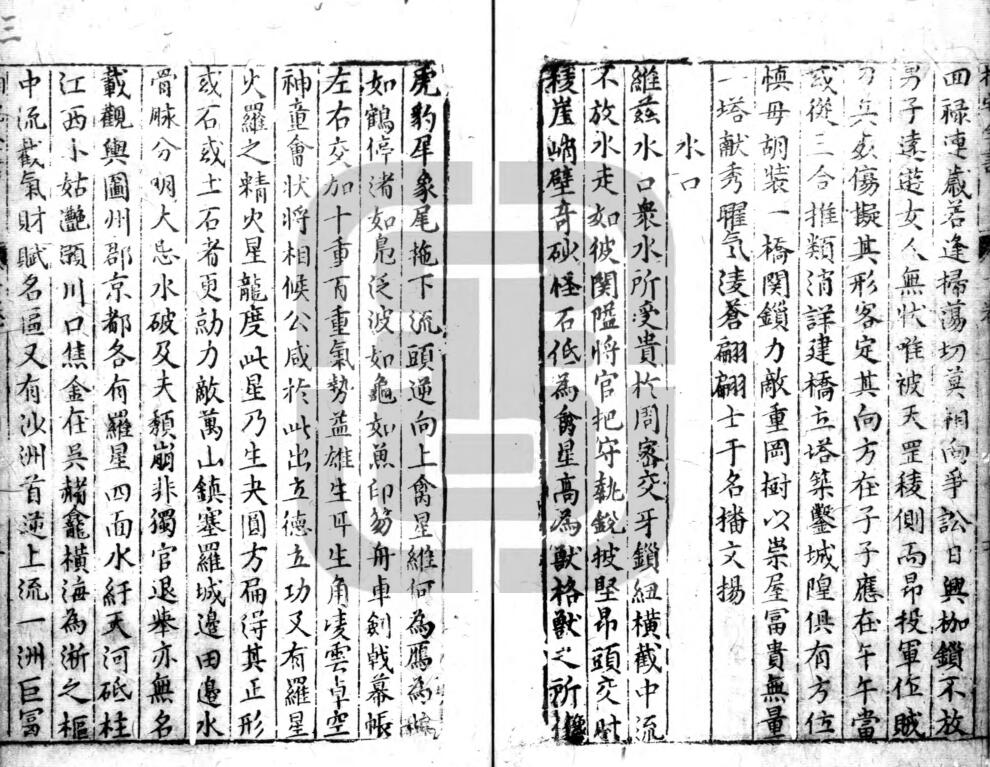 四祿連歲若逢掃蕩切莫相向爭訟日興枷鎖不放
男子遠遊女人無狀唯被天罡稜側而昂投軍位賊
刀兵刼傷擬其形客定其向方在子子應在午午當
或從三合推類消詳建橋立塔築鑿城隍俱有方位
慎毋胡裝一橋関鎖力敵重岡樹以崇屋冨貴無量
一塔献秀曜氣凌蒼翩翩士子名播文揚
水口
維茲水口衆水所受貴扵周密交牙鎖紐橫截中流
不放水走如彼関隘將官把守執銳披堅昂頭交肘
稜崖峭壁奇砂怪石低為禽星高為獸格獸之所
虎豹犀象尾拖下流頭逆向上禽星維何為鴈為
如鶴停渚如鳬泛波如龜如魚印笏舟車劍戟幕帳
左右交加十重百重氣勢益雄生耳生角凌雲卓空
神童會狀將相候公咸於此出立德立功又有羅星
火羅之精火星龍度此星乃生夬圓方扁得其正形
或石或土石者更勍力敵萬山鎮塞羅城邊田邊水
骨脉分明大忌水破及夫頽崩非獨官退舉亦無名
載觀輿圖州郡京都各有羅星四面水紆天河砥柱
江西小姑灔澦川口焦金在吳赭龕橫海為淅之樞
中流截氣財賦名區又有沙洲首逆上流一洲巨冨